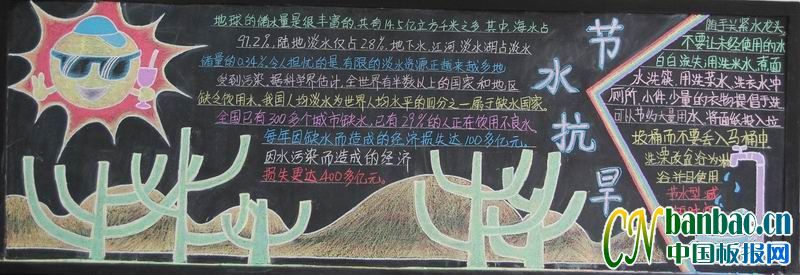 地球的储水量是很丰富的,共有14.5亿立方千米之多.其中,海水占
97.2%,陆地淡水仅占2.8%,地下水,江河,淡水湖占淡水
储量的0.34%.令人担忧的是,有限的淡水资源正越来越多地
受到污染.据科学界估计,全世界有半数以上的国家和地区
缺乏饮用水,我国人均淡水为世界人均水平的四分之一属于缺水国家.
全国已有300多个城市缺水,已有29%的人正在饮用不良水.
每年因缺水而造成的经济损失达100多亿元.
因水污染而造成的经济
损失更达400多亿元.
节水抗旱
随手关紧水龙头
不要让未经使用的水
白白流失;用洗米水,煮面
水洗碗,用洗菜水,洗衣水
厕所,小件,少量的衣物提倡手洗
可以节约大量用水,将面纸投入垃
圾桶而不要丢入马桶中
洗澡改盆浴为淋
浴并且使用
节水型
CN banbao.cn
中国板报网